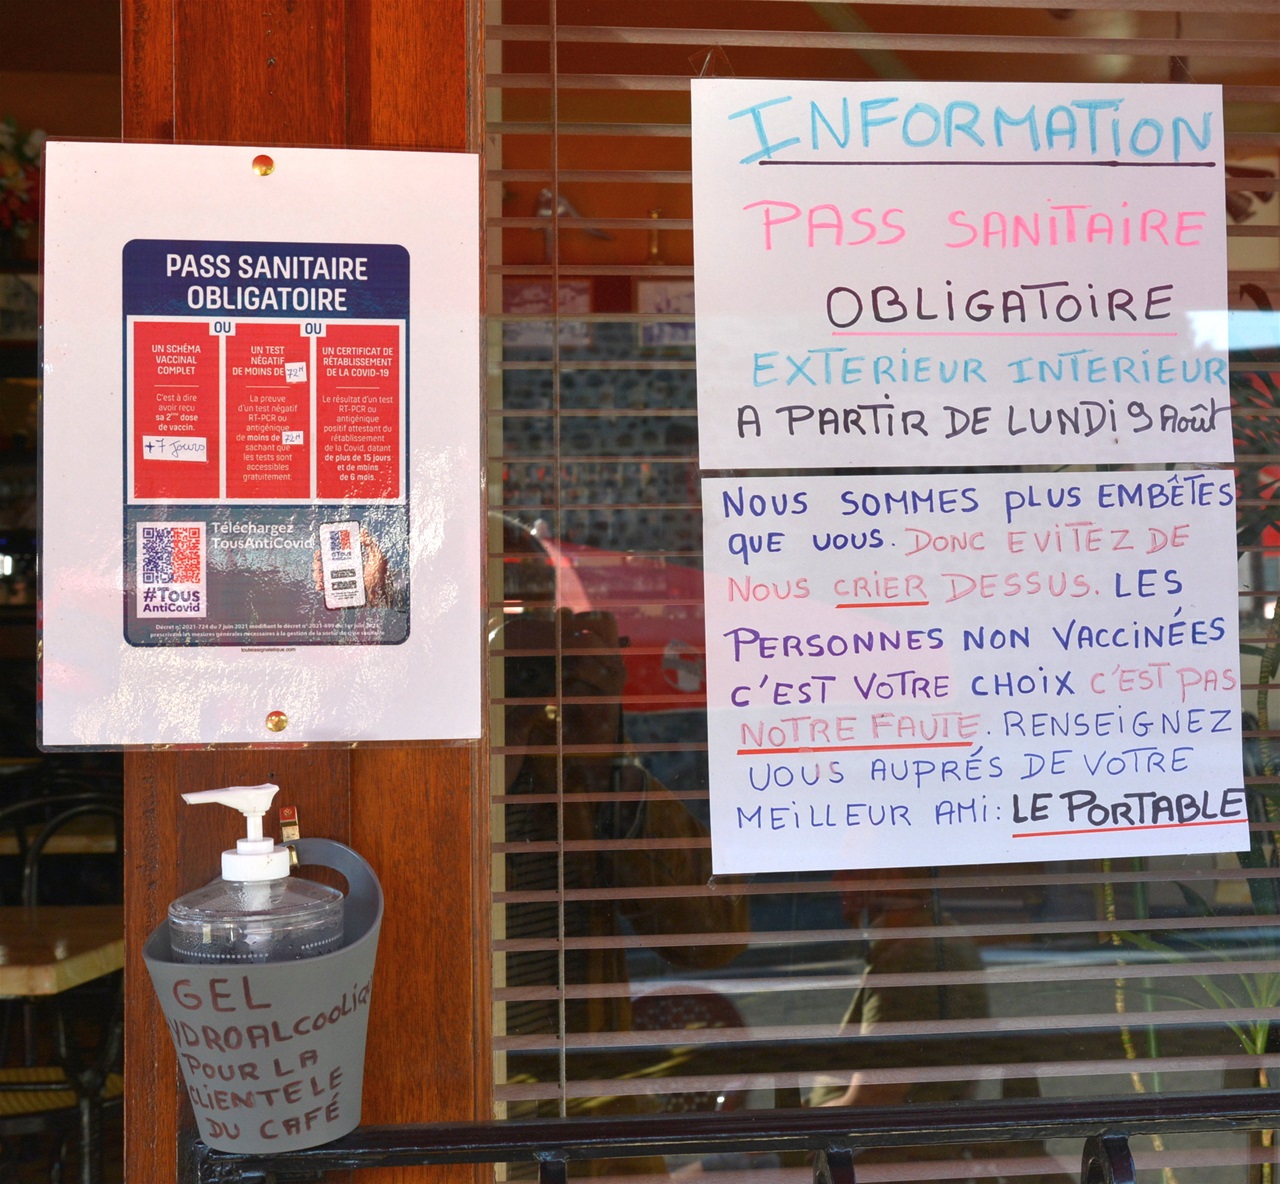 PASS SANITAIRE
OBLIGATOIRE
OU
OU
UN SCHÉMA
VACCINAL
COMPLET
C'est à dire
avoir reçu
sa 2ème dose
de vaccin.
+7 Jours
UN TEST
NÉGATIF
DE MOINS DE 72H
La preuve
d'un test négatif
RT-PCR ou
antigénique
de moins de 72H
sachant que
les tests sont
accessibles
gratuitement.
UN CERTIFICAT DE
RÉTABLISSEMENT
DE LA COVID-19
Le résultat d'un test
RT-PCR ou
antigénique
positif attestant du
rétablissement
de la Covid, datant
de plus de 15 jours
et de moins
de 6 mois.
Téléchargez
TousAntiCovid
#Tous
AntiCovid
Décret n° 2021-724 du 7 juin 2021 modifiant le décret n° 2021-699 du 1er juin 2021
prescrivant les mesures générales nécessaires à la gestion de la sortie de crise sanitaire
INFORMATION
PASS SANITAIRE
OBLIGATOIRE
EXTERIEUR INTERIEUR
A PARTIR DE LUNDI 9 Août
NOUS SOMMES PLUS EMBÊTES
QUE VOUS. DONC EVITEZ DE
NOUS CRIER DESSUS. LES
PERSONNES NON VACCINÉES
C'EST VOTRE CHOIX C'EST PAS
NOTRE FAUTE. RENSEIGNEZ
VOUS AUPRÉS DE VOTRE
MEILLEUR AMI: LE PORTABLE
GEL
YDROALCOOLIQ
POUR LA
CLIENTELE
DU CAFÉ